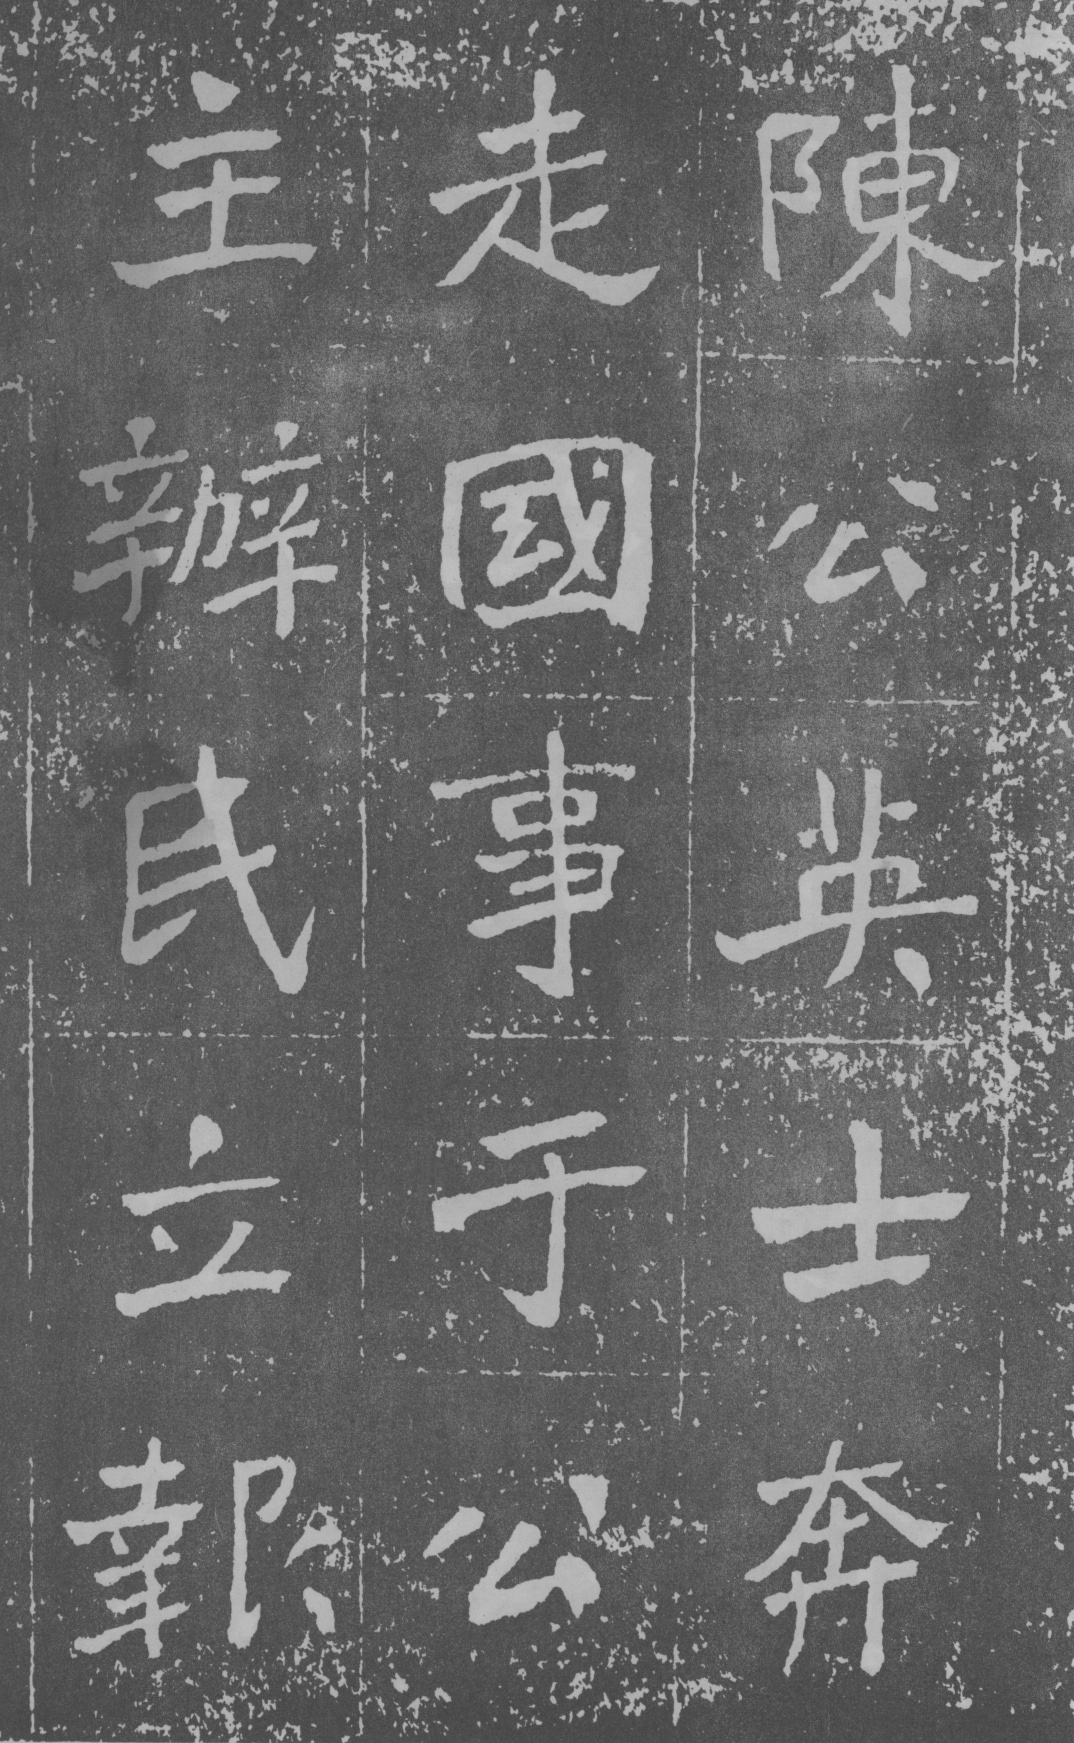 陳公英士奔
走國事于公
主辦民立報